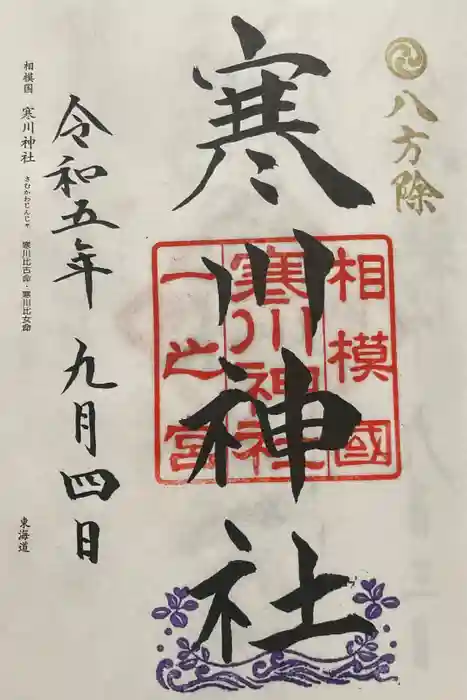 八方除
寒川神社
相模國
寒川神社
一之宮
令和五年 九月四日
相模国 寒川神社 さむかわじんじゃ 寒川比古命・寒川比女命
東海道